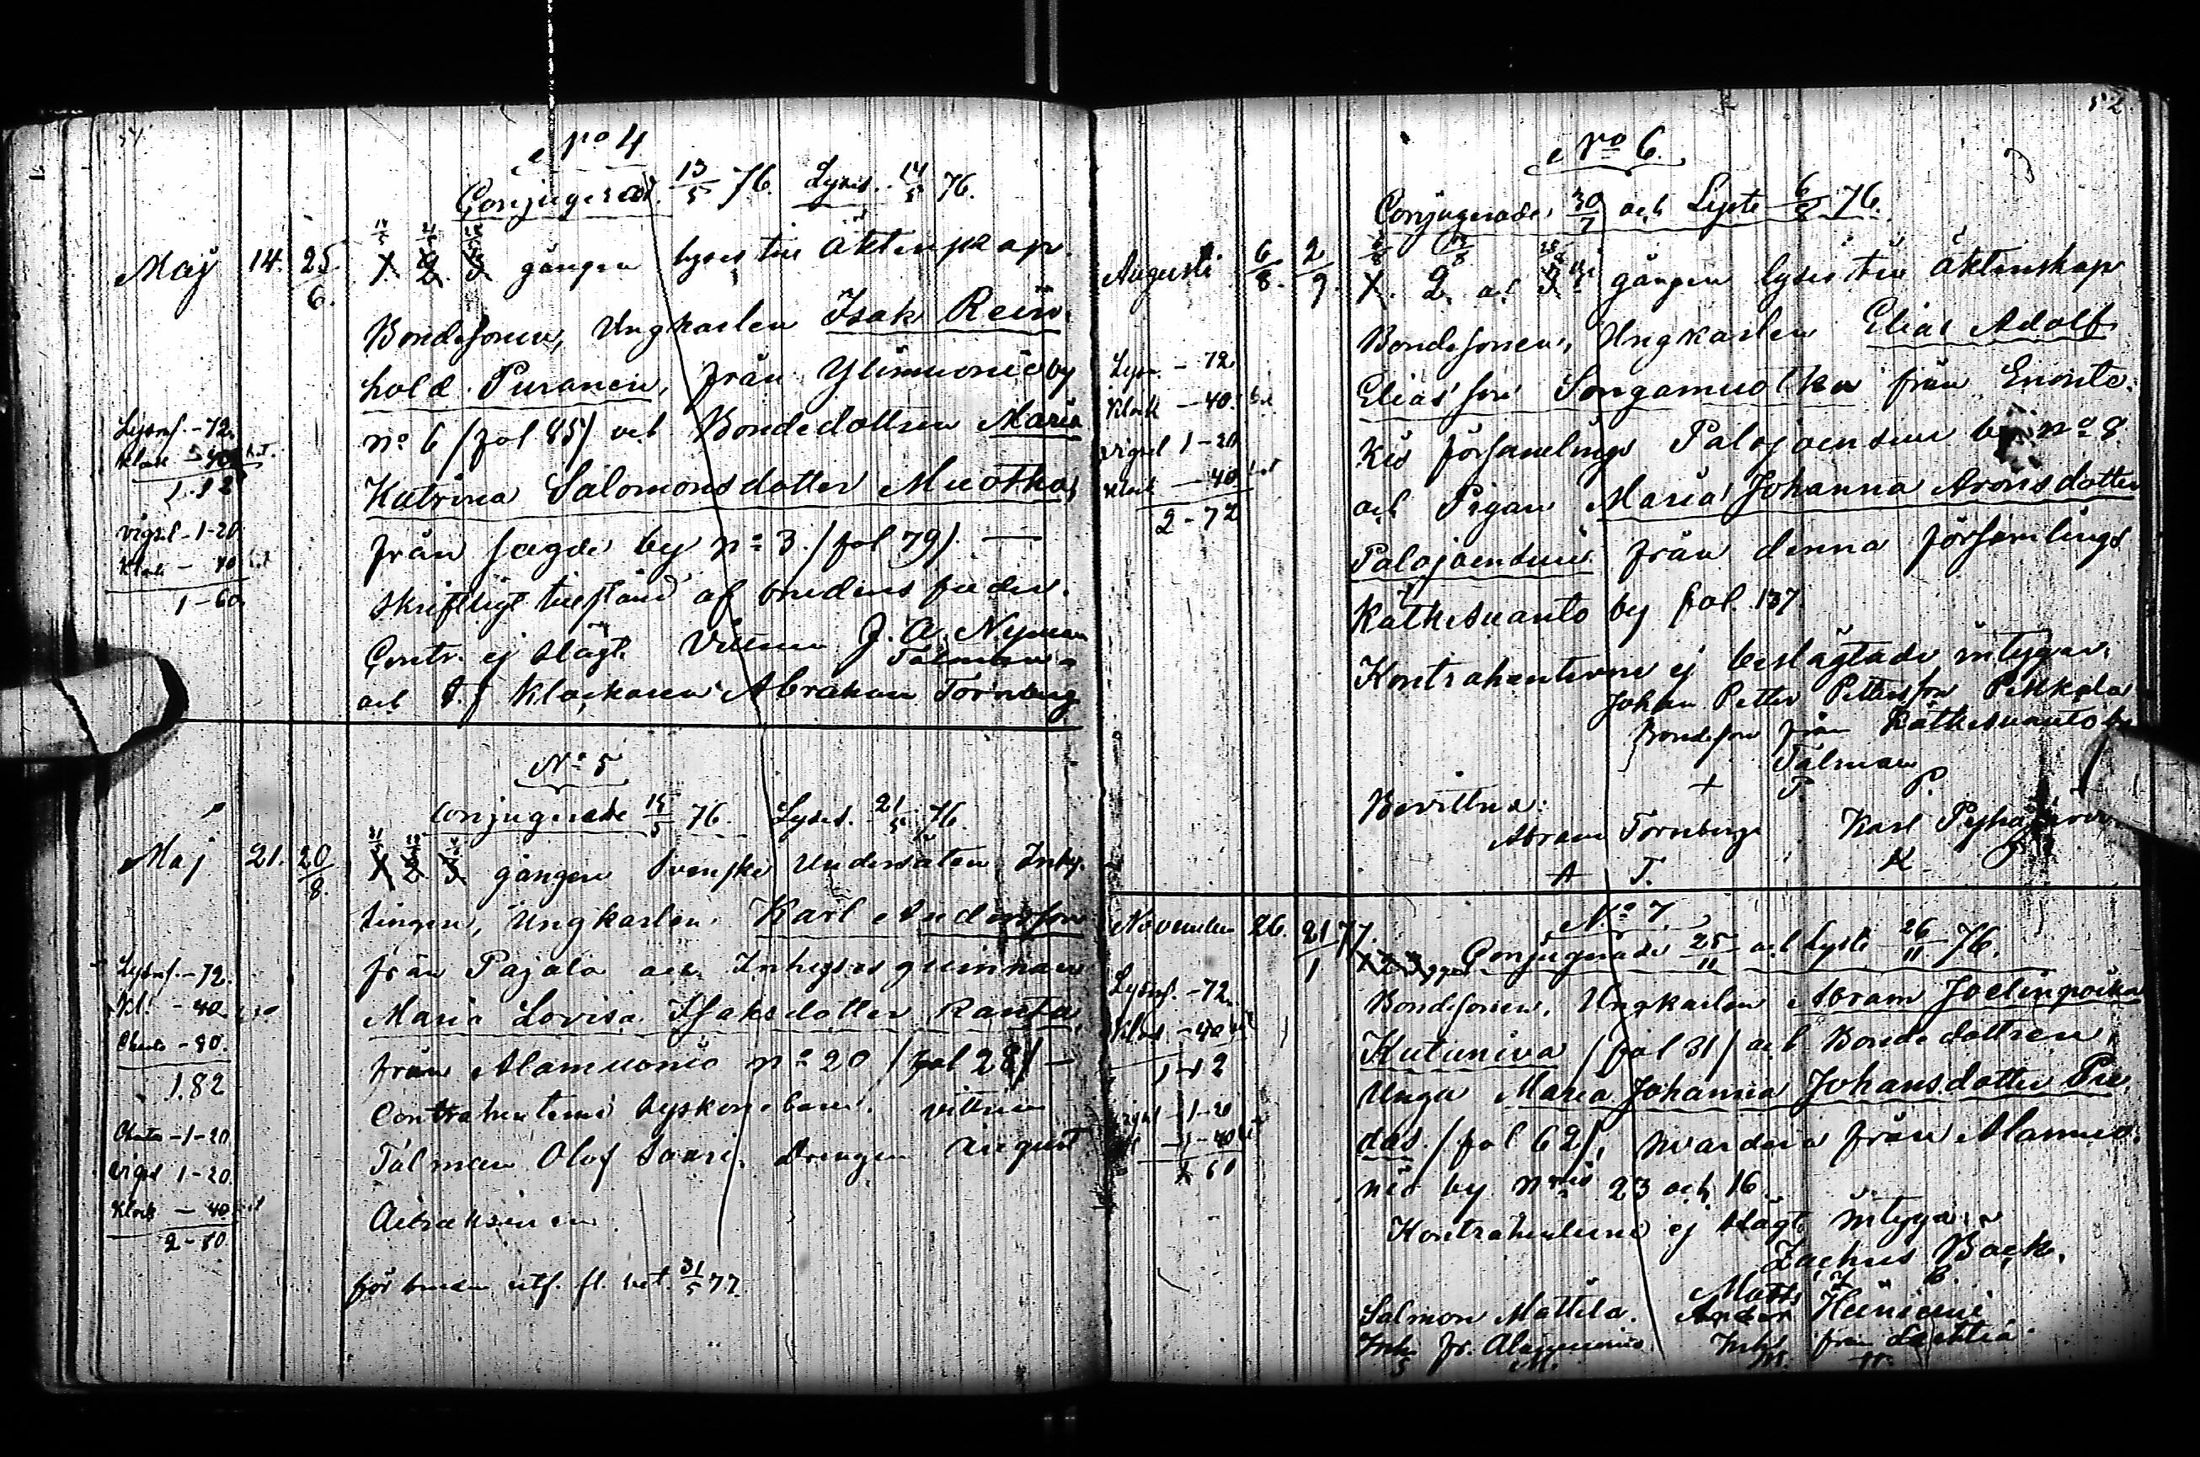 51
No 4
Conjugerad. 13/5 76. Lyses. 14/5 76.
Maj 14. 25/6.
14/5
1 2 3 gången lyses till Äktenskap
Bondesonen, Ungkarlen Isak Rein-
hold Puranen, från Ylimuonio by
no 6 (fol 85) och Bondedottren Maria
Katrina Salomonsdotter Muotka,
från sagde by no 3. (fol 79). —
Skriftligt tillstånd af brudens fader.
Contr. ej slägt. Vittnen J. A. Nyman
Talman
och Klockaren Abraham Tornberg
Lysnf. - 72.
Klock - 40
1.12
Vigsel - 1-20
Klock - 40
1-60.
No 5
Conjugerade 15/5 76. Lyses. 21/5 76.
Maj 21. 20/8.
21/5
1 2 3 gången Svenske Undersåten Inhy-
singen, Ungkarlen Karl Andersson
från Pajala och Inhyses qvinnan
Maria Lovisa Isaksdotter Ranta
från Alamuonio no 20 (fol 28) —
Contrahenterne syskonebarn. Vittnen
Talman Olof Saari, Drengen August
för bruden utf. fl. bet. 31/5 77.
Lysnf. - 72.
Kl. - 40
- 80.
1.82
- 1-20
Vigs 1-20
Klock - 40
2-80
52
No 6.
Conjugerade 30/7 och Lyste 6/8 76.
Augusti 6/8. 2/9.
1. 2. och 3 gången lyses till Äktenskap
Bondesonen, Ungkarlen Elias Adolf
Eliasson Songamuotka från Enonte-
kis församlings Palojoensuu by no 8.
och Pigan Maria Johanna Aronsdotter
Palojoensuu från denna församlings
Kätkesuanto by fol. 137
Kontrahenterne ej beslägtade intygar
Johan Petter Pettersson Petkola
Bondeson från Kätkesuanto by
Talman
+ P P.
Bevittna:
Abram Tornberg Karl
A T. K
Lysn. - 72
Klock - 40.
Vigsel 1-20
Klock - 40
2-72
November 26. 21/1 77.
No 7.
1 2 3 ggn Conjugerade 25/11 och Lyste 26/11 76.
Bondesonen, Ungkarlen Abram Joelinpoika
Kutuniva (fol 31) och Bondedottren,
Unga Maria Johanna Johansdotter Pie-
das. (fol 62), hvardera från Alamuo-
nio by nris 23 och 16.
Kontrahenterne ej slägt intyga:
Zachus Back.
Z B.
Salmon Mattila. Matts
Inh. fr. Alamuonio Inh. från
S M. M. H.
Lysnf. - 72
Klock - 40
1-12
1-20
- 40
1 60